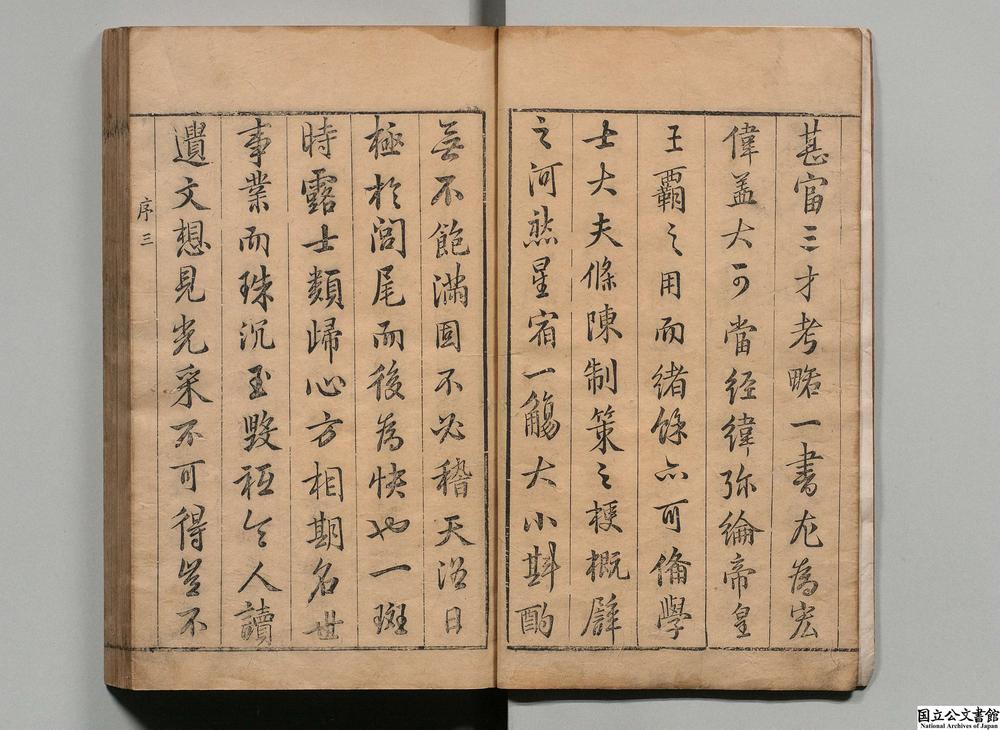 甚富三才考略一書尤為宏
偉盖大可當經緯弥綸帝皇
王覇之用而緒餘亦可俻學
士大夫條陳制策之梗概辟
之河然星宿一觴大小斟酌
無不飽滿固不必稽天浴日
極於閭尾而後為快也一斑
時露士類歸心方相期名世
事業而珠沉玉毀秪令人讀
遺文想見光采不可得豈不
序三
国立公文書館
National Archives of Japan